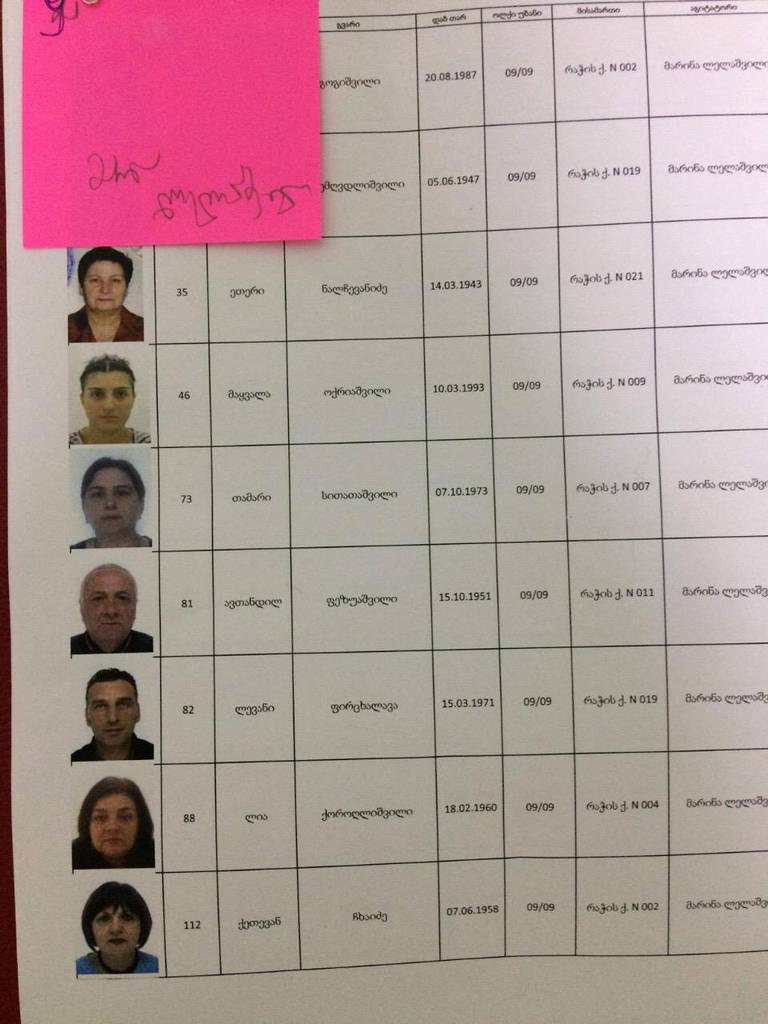 გვარი დაბ თარ ოლქი უბანი მისამართი აგიტატორი
გოგიშვილი 20.08.1987 09/09 რაჭის ქ. N 002 მარინა
05.06.1947 09/09 რაჭის ქ. N 019 მარინა
35 ეთერი ნალჩევანიძე 14.03.1943 09/09 რაჭის ქ. N 021 მარინა
46 მაყვალა ოქრიაშვილი 10.03.1993 09/09 რაჭის ქ. N 009 მარინა
73 თამარი სითათაშვილი 07.10.1973 09/09 რაჭის ქ. N 007 მარინა
81 ავთანდილ ფეზუაშვილი 15.10.1951 09/09 რაჭის ქ. N 011 მარინა
82 ლევანი ფირცხალავა 15.03.1971 09/09 რაჭის ქ. N 019 მარინა
88 ლია ქოროღლიშვილი 18.02.1960 09/09 რაჭის ქ. N 004 მარინა
112 ქეთევან ჩხაიძე 07.06.1958 09/09 რაჭის ქ. N 002 მარინა